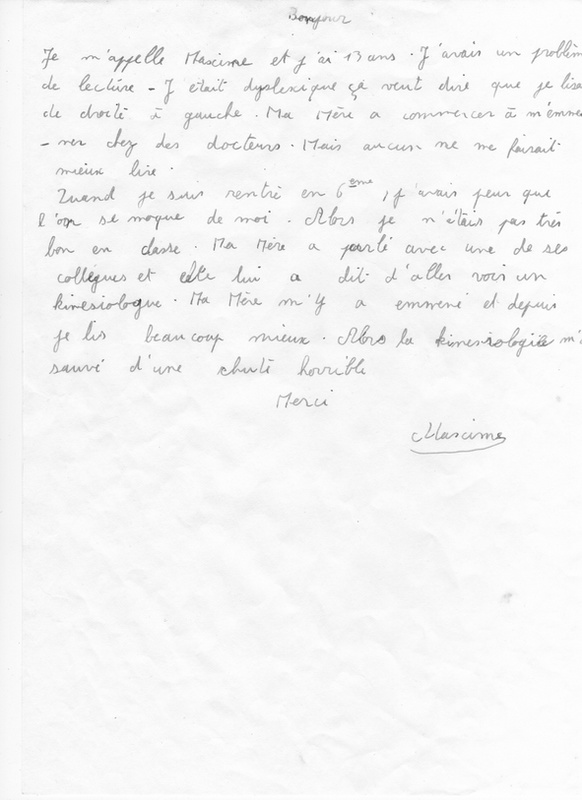 Bonjour
Je m'appelle Maxime et j'ai 13 ans. J'avais un problèm
de lecture - J'était dyslexique ça veut dire que je lisa
de droité à gauche. Ma Mère a commencer à m'emme
- ner chez des docteurs. Mais aucun ne me faisait
mieux lire.
Quand je suis rentré en 6ème, j'avais peur que
l'on se moque de moi. Alors je n'étais pas très
bon en classe. Ma Mère a parlé avec une de ses
collègues et elle lui a dit d'aller voir un
kinesiologue. Ma Mère m'y a emmené et depuis
je lis beaucoup mieux. Alors la kinesiologie m'
sauvé d'une chute horrible
Merci
Maxime